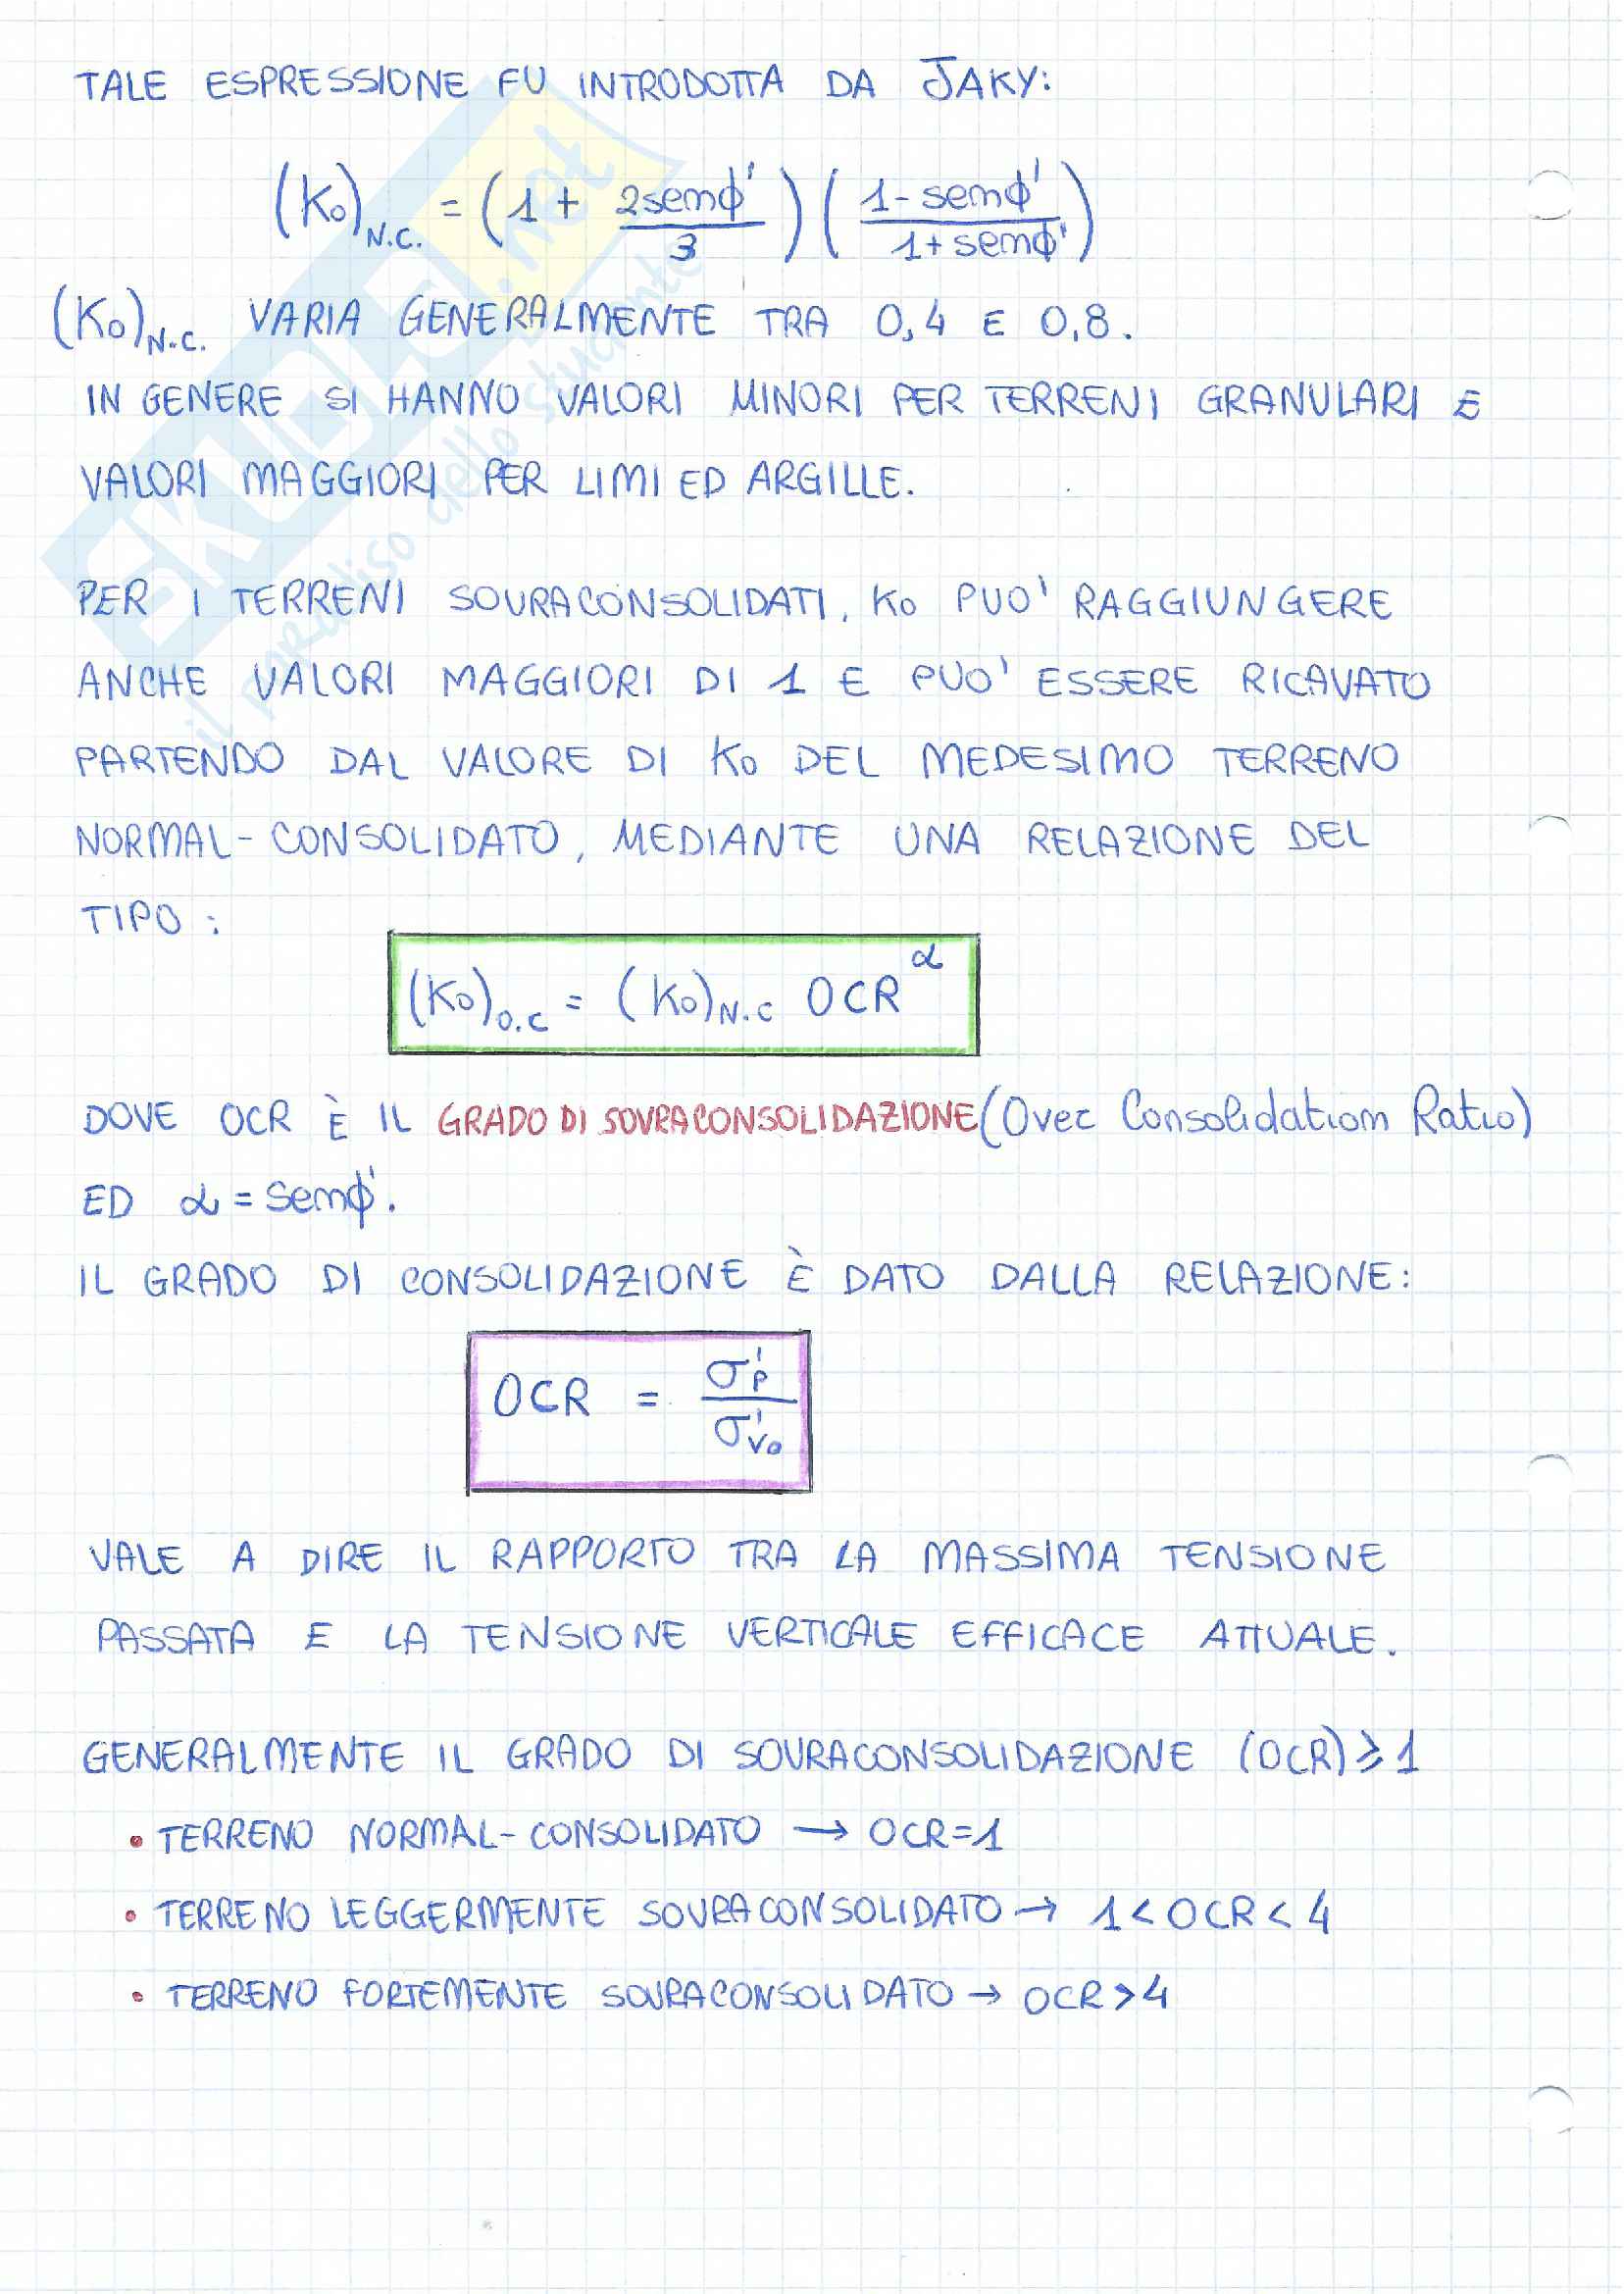 TALE ESPRESSIONE FU INTRODOTTA DA JAKY:
(K₀)N.C. = (1 + 2senϕ'/3)(1-senϕ'/1+senϕ')
(K₀)N.C. VARIA GENERALMENTE TRA 0,4 E 0,8.
IN GENERE SI HANNO VALORI MINORI PER TERRENI GRANULARI E
VALORI MAGGIORI PER LIMI ED ARGILLE.
PER I TERRENI SOVRACONSOLIDATI, K₀ PUO' RAGGIUNGERE
ANCHE VALORI MAGGIORI DI 1 E PUO' ESSERE RICAVATO
PARTENDO DAL VALORE DI K₀ DEL MEDESIMO TERRENO
NORMAL-CONSOLIDATO, MEDIANTE UNA RELAZIONE DEL
TIPO:
(K₀)O.C = (K₀)N.C OCR^α
DOVE OCR È IL GRADO DI SOVRACONSOLIDAZIONE (Over Consolidation Ratio)
ED α = senϕ'.
IL GRADO DI CONSOLIDAZIONE È DATO DALLA RELAZIONE:
OCR = σ'p/σ'v₀
VALE A DIRE IL RAPPORTO TRA LA MASSIMA TENSIONE
PASSATA E LA TENSIONE VERTICALE EFFICACE ATTUALE.
GENERALMENTE IL GRADO DI SOVRACONSOLIDAZIONE (OCR) ⩾ 1
• TERRENO NORMAL-CONSOLIDATO → OCR=1
• TERRENO LEGGERMENTE SOVRACONSOLIDATO → 1 < OCR < 4
• TERRENO FORTEMENTE SOVRACONSOLIDATO → OCR > 4
SKUOLA.net
il paradiso dello studente